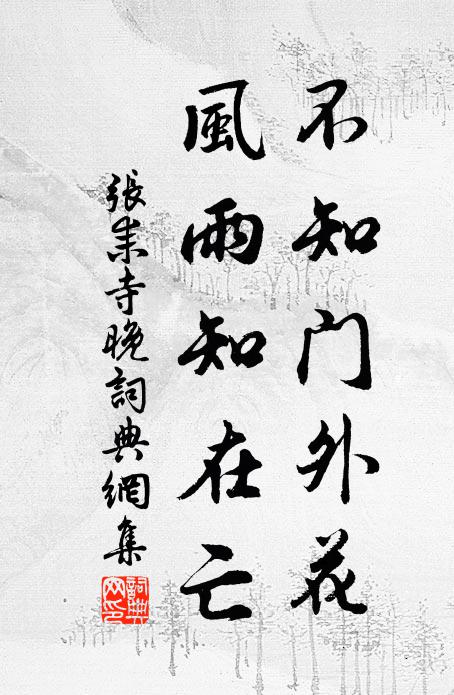 不知门外花
風雨知在亡
張耒寺晚詞典網集